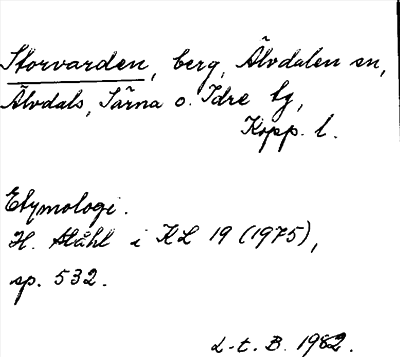 Storvarden, berg, Älvdalen sn,
Älvdals, Särna o. Idre tg,
Kopp. l.
Etymologi.
H. Ståhl i KL 19 (1975),
sp. 532.
L-t. B. 1982.